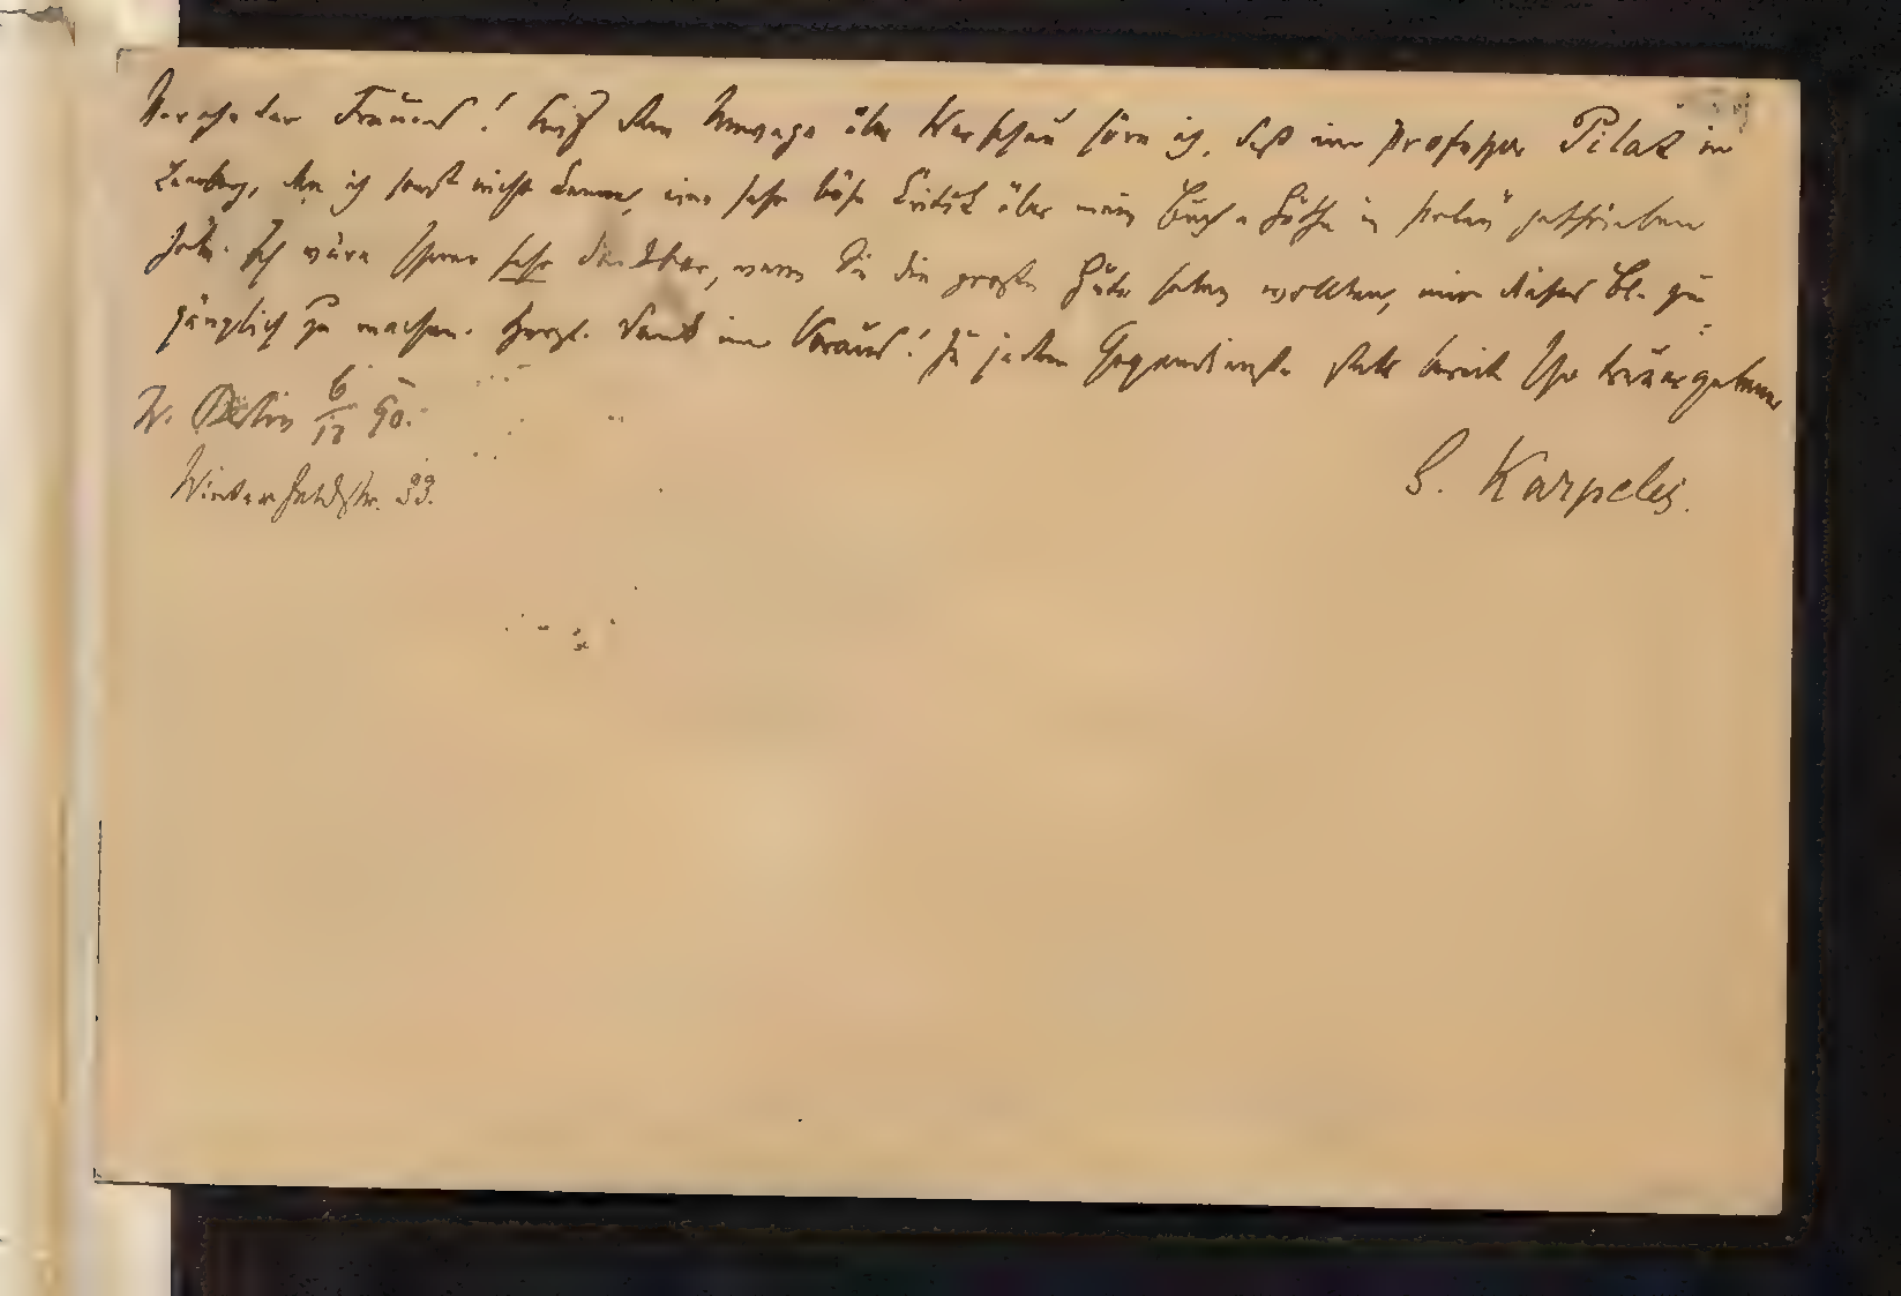 Verehrter Freund! Auf dem Umwege über Warschau höre ich, daß ein Professor Pilat in
Lemberg, den ich sonst nicht kenne, eine sehr böse Kritik über mein Buch „Göthe in Polen" geschrieben
habe. Ich wäre Ihnen sehr dankbar, wenn Sie die große Güte haben wollten, mir dieses Bl. zu
gänglich zu machen. Herzl. Dank im Voraus! Zu jedem Gegendienste stets bereit Ihr treuergebener
W. Berlin 6/12 90.
G. Karpeles.
Winterfeldtstr. 33.